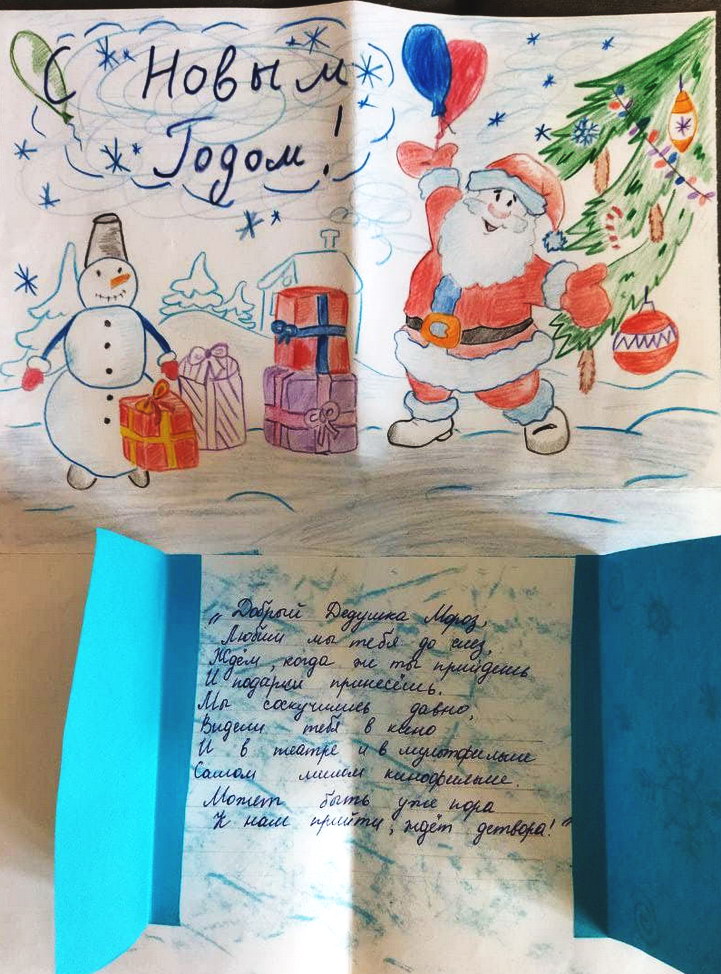 С Новым
Годом!
"Добрый Дедушка Мороз,
Любим мы тебя до слез,
Ждём, когда же ты прийдешь
И подарки принесёшь.
Мы соскучились давно,
Видели тебя в кино
И в театре и в мультфильме
Самом милом кинофильме.
Может быть уже пора
К нам прийти, ждёт детвора!"